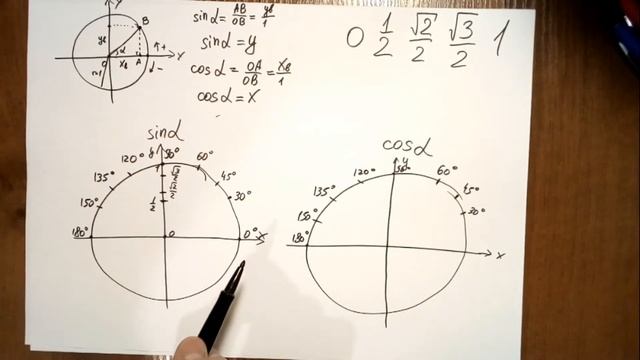 y
B
yB
α
O
xB
A
x
+
-
r=1
sinα = AB/OB = yB/1
sinα = y
cosα = OA/OB = xB/1
cosα = x
0 1/2 √2/2 √3/2 1
sinα
y 90°
120° 60°
135° 45°
150° 30°
1
√3/2
√2/2
1/2
180° 0 0° x
cosα
y
90°
120° 60°
135° 45°
150° 30°
180°
x